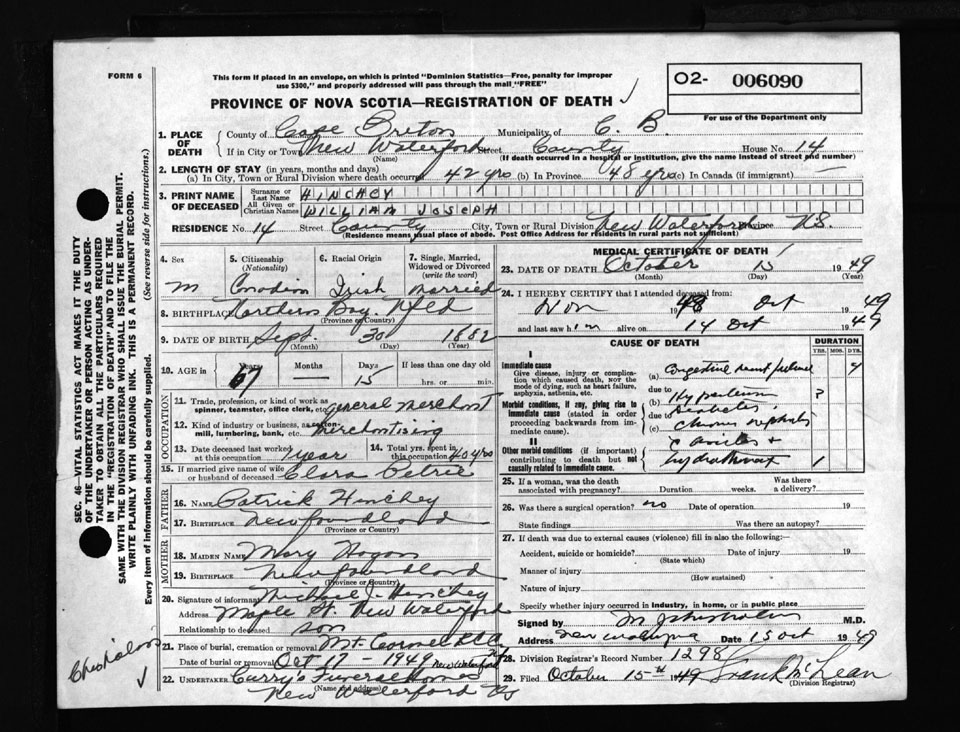 FORM 6
This form if placed in an envelope, on which is printed "Dominion Statistics—Free, penalty for improper
use $300," and properly addressed will pass through the mail "FREE"
O2- 006090
For use of the Department only
PROVINCE OF NOVA SCOTIA—REGISTRATION OF DEATH
1. PLACE OF DEATH
County of Cape Breton Municipality of C. B.
If in City or Town New Waterford Street County House No. 14
(Name) (If death occurred in a hospital or institution, give the name instead of street and number)
2. LENGTH OF STAY (in years, months and days)
(a) In City, Town or Rural Division where death occurred 42 yrs (b) In Province 48 yrs (c) In Canada (if immigrant) —
3. PRINT NAME OF DECEASED
Surname or Last Name HINCHEY
All Given or Christian Names WILLIAM JOSEPH
RESIDENCE No. 14 Street County City, Town or Rural Division New Waterford Province N.S.
(Residence means usual place of abode. Post Office Address for residents in rural parts not sufficient)
4. Sex M
5. Citizenship (Nationality) Canadian
6. Racial Origin Irish
7. Single, Married, Widowed or Divorced (write the word) Married
8. BIRTHPLACE Northern Bay, Nfld
(Province or Country)
9. DATE OF BIRTH Sept. 30 1882
(Month) (Day) (Year)
10. AGE in Years 67 Months — Days 15 If less than one day old
hrs. or min.
OCCUPATION
11. Trade, profession, or kind of work as
spinner, teamster, office clerk, etc. General Merchant
12. Kind of industry or business, as cotton-
mill, lumbering, bank, etc. Merchantising
13. Date deceased last worked at this occupation 1 year
14. Total yrs. spent in this occupation 40 yrs
15. If married give name of wife
or husband of deceased Clara Petrie
FATHER
16. NAME Patrick Hinchey
17. BIRTHPLACE Newfoundland
(Province or Country)
MOTHER
18. MAIDEN NAME Mary Hogan
19. BIRTHPLACE Newfoundland
(Province or Country)
20. Signature of informant Michael J. Hinchey
Address Maple St. New Waterford
Relationship to deceased son
21. Place of burial, cremation or removal Mt. Carmel
Date of burial or removal Oct 17 - 1949 New Waterford
22. UNDERTAKER Curry's Funeral Home
(Name and address)
New Waterford NS
MEDICAL CERTIFICATE OF DEATH
23. DATE OF DEATH October 15 1949
(Month) (Day) (Year)
24. I HEREBY CERTIFY that I attended deceased from:
Nov 1948 Oct 1949
and last saw him alive on 14 Oct 1949
CAUSE OF DEATH
DURATION
YRS. MOS. DYS.
I
Immediate cause
Give disease, injury or complication which caused death, not the mode of dying, such as heart failure, asphyxia, asthenia, etc.
(a) Congestive heart failure
due to
Morbid conditions, if any, giving rise to immediate cause (stated in order proceeding backwards from immediate cause).
(b) Hypertension ?
due to Diabetes
(c) chronic nephritis
II
Other morbid conditions (if important) contributing to death but not causally related to immediate cause.
c ascites +
hydrothorax 1
25. If a woman, was the death
associated with pregnancy? Duration weeks. Was there a delivery?
26. Was there a surgical operation? no Date of operation 19
State findings Was there an autopsy?
27. If death was due to external causes (violence) fill in also the following:
Accident, suicide or homicide? Date of injury 19
(State which)
Manner of injury
(How sustained)
Nature of injury
Specify whether injury occurred in industry, in home, or in public place
Signed by M.D.
Address New Waterford Date 15 Oct 1949
28. Division Registrar's Record Number 1298
29. Filed October 15th 1949 Frank McLean
(Division Registrar)
SEC. 46—VITAL STATISTICS ACT MAKES IT THE DUTY
OF THE UNDERTAKER OR PERSON ACTING AS UNDER-
TAKER TO OBTAIN ALL THE PARTICULARS REQUIRED
IN THE "REGISTRATION OF DEATH" AND TO FILE THE
SAME WITH THE DIVISION REGISTRAR WHO SHALL ISSUE THE BURIAL PERMIT.
WRITE PLAINLY WITH UNFADING INK. THIS IS A PERMANENT RECORD.
Every item of information should be carefully supplied. (See reverse side for instructions.)